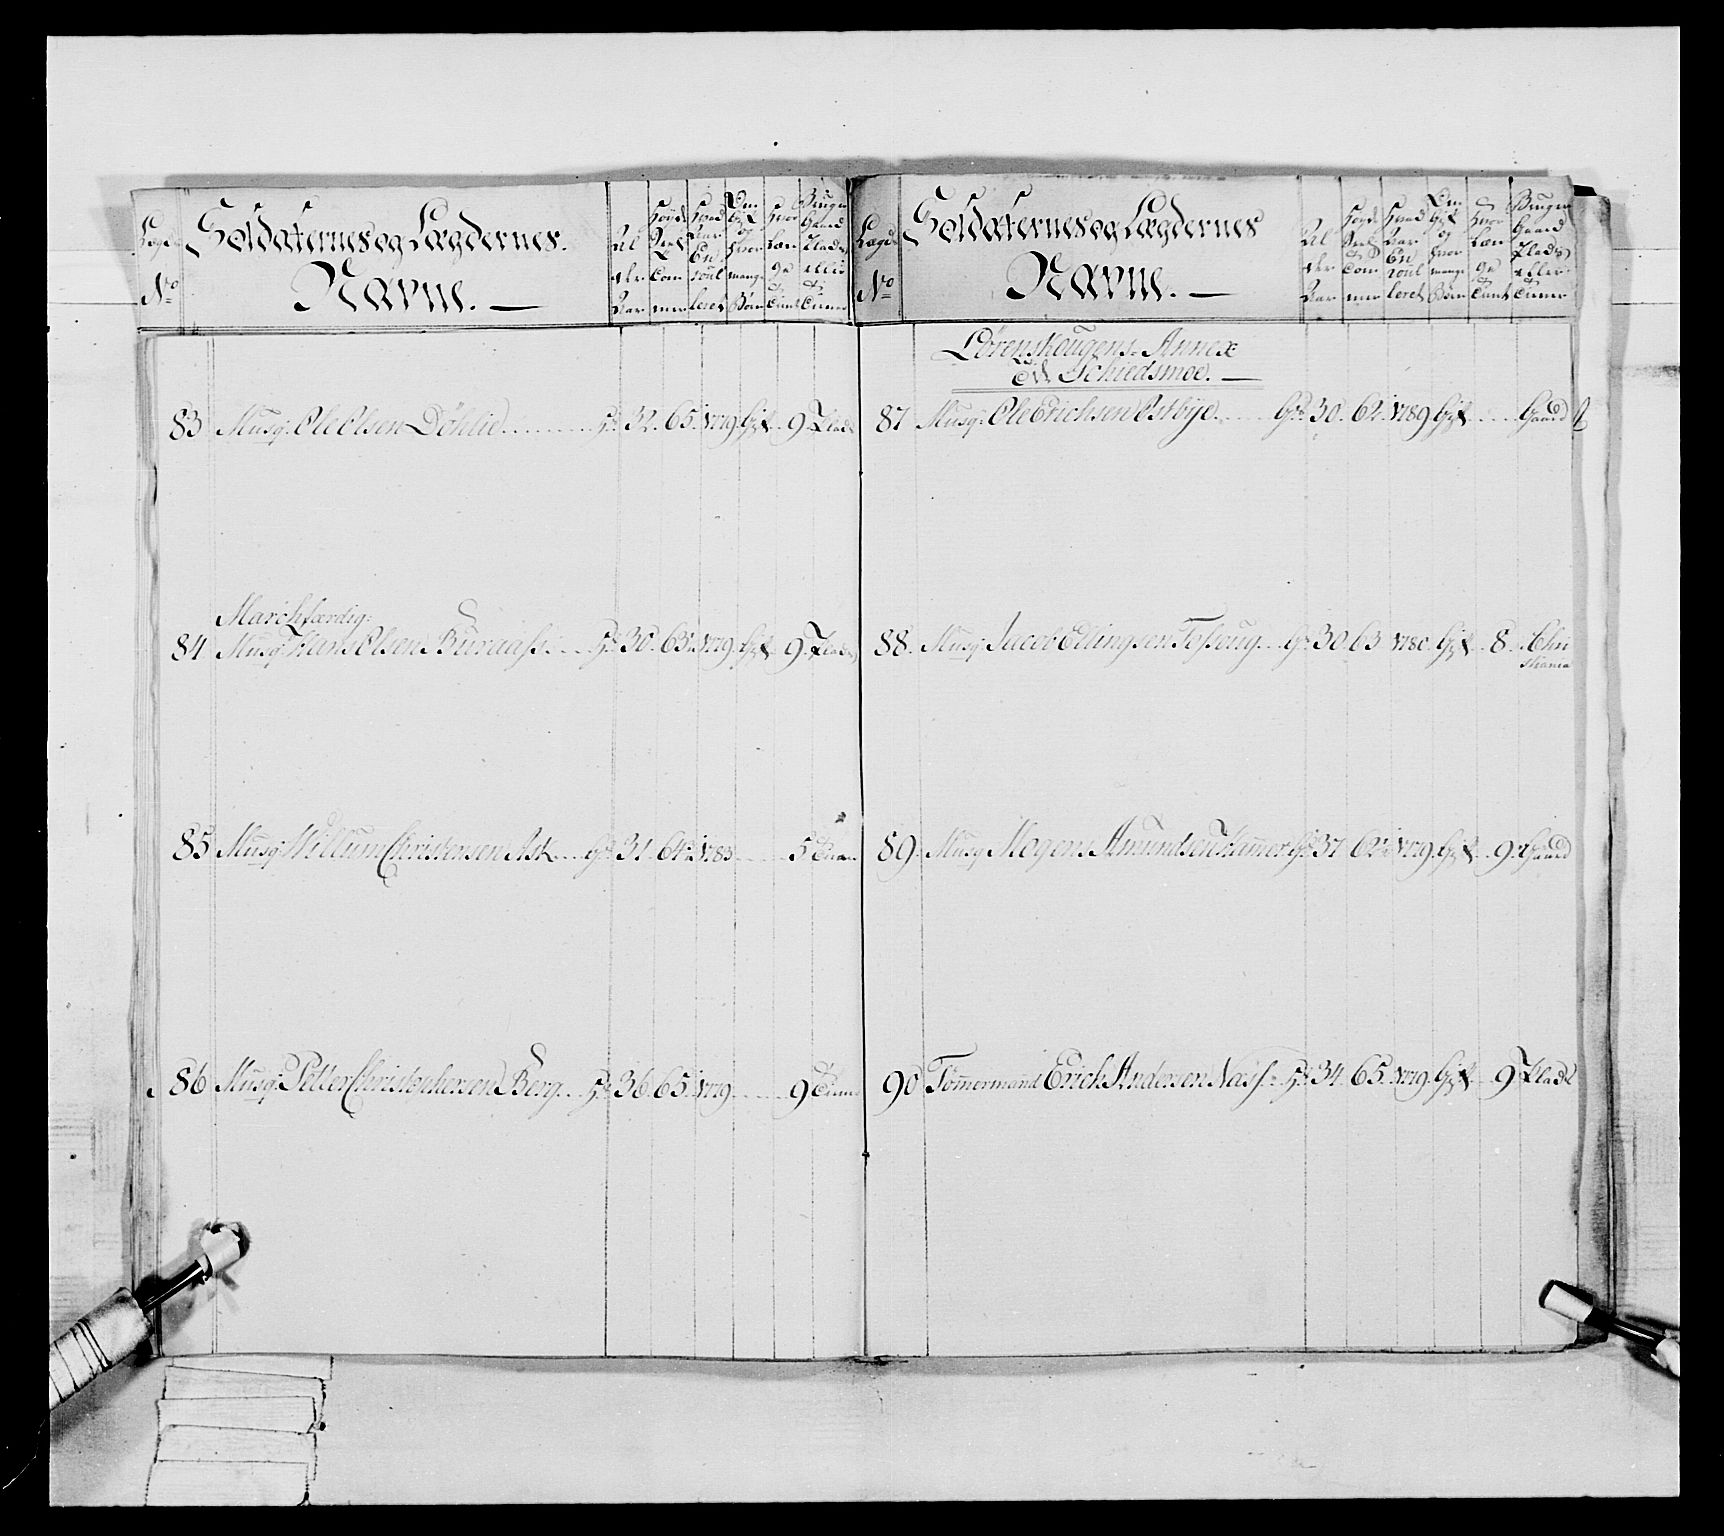 Lægd No
Soldaternes og Lægdernes
Navne. —
Al der Aar
Høyde
Hvad Aar En roul leret
Om Gift og hvor mange Børn
Hvor Læn ge Tient
Bruger Gaard Plads eller
83 Musq: Ole Olsen Döhlie 32. 65. 1779. Gift 9 Plads
Marchfærdig:
84 Musq: Hans Olsen Buraas 30. 63. 1779. Gift 9 Plads
85 Musq: Willum Christensen Ask 31. 64. 1783 5
86 Musq: Petter Christophersen Berg 36. 65. 1779 9
Lægd No
Soldaternes og Lægdernes
Navne. —
Al der Aar
Høyde
Hvad Aar En roul leret
Om Gift og hvor mange Børn
Hvor Læn ge Tient
Bruger Gaard Plads eller
Lörenskougens Annex
til Schiedsmoe. —
87 Musq: Ole Erichsen Østbye 30. 62. 1789 Gift Gaard
88. Musq: Jacob Ellingsen 30 63 1780. Gift 8. Chri
stiania
89. Musq: Mogens Amundsen Hammer 37 62 1779. Gift 9. Gaard
90 Tömmermand Erich Andersen Næss 34. 65. 1779. Gift 9 Plads